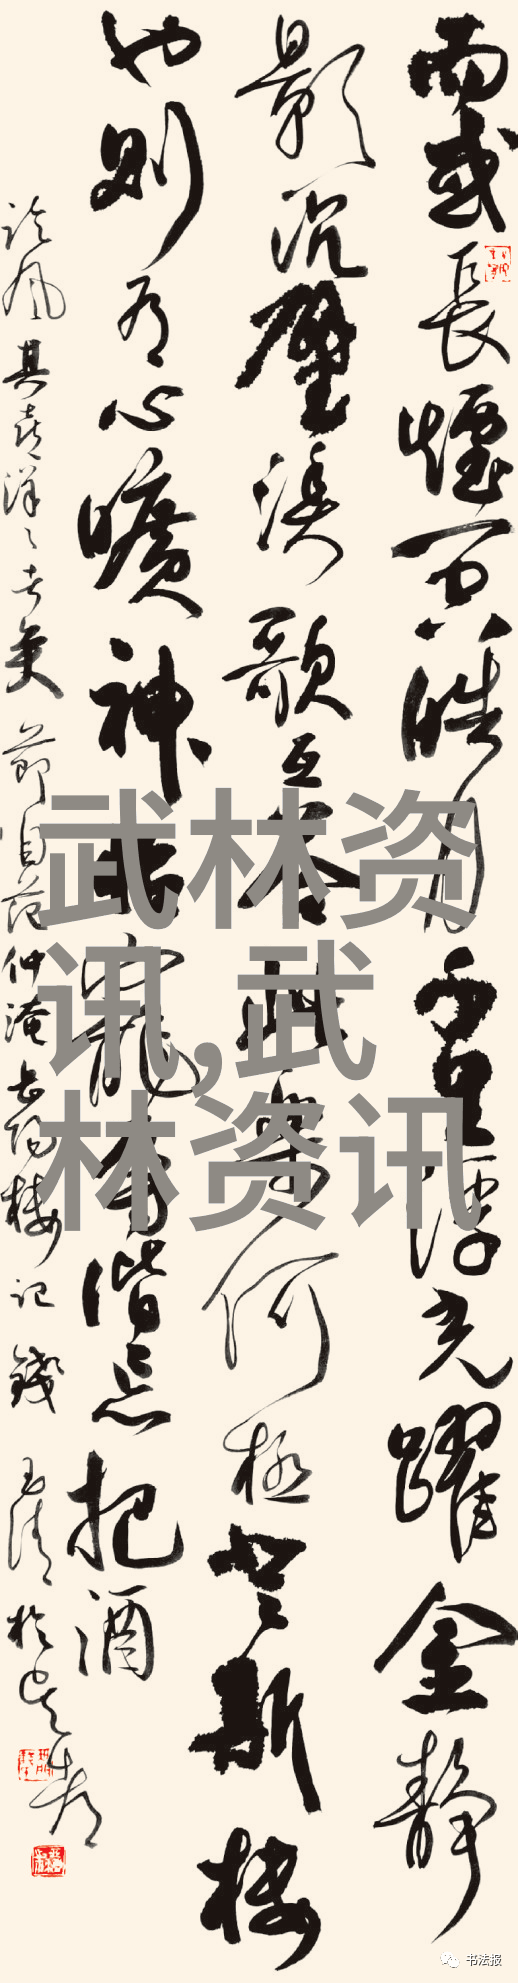 而或長煙一空皓月千里浮光躍金靜
影沉璧漁歌互答此樂何極登斯樓
也則有心曠神怡寵辱偕忘把酒
臨風其喜洋〻者矣 節自范仲淹岳陽樓記 錢玉清於
武林资
讯,武
林资讯
书法报